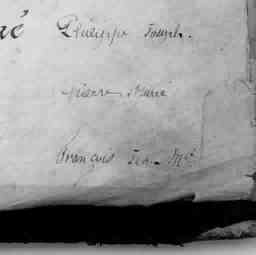 né Philippe Joseph.
Pierre Marie
François Jean Mie